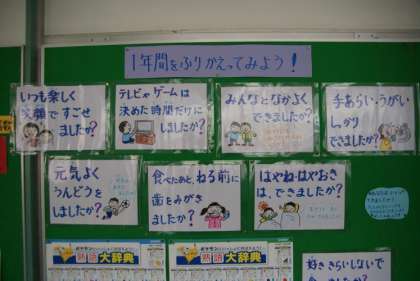 1年間をふりかえってみよう！
いつも楽しく
笑顔ですごせ
ましたか？
テレビやゲームは
決めた時間だけに
しましたか？
みんなとなかよく
できましたか？
手あらい・うがい
しっかり
できましたか？
元気よく
うんどうを
しましたか？
食べたあと、ねる前に
歯をみがき
ましたか？
はやね・はやおき
は、できましたか？
好ききらいしないで
食べましたか？
熟語大辞典
熟語大辞典